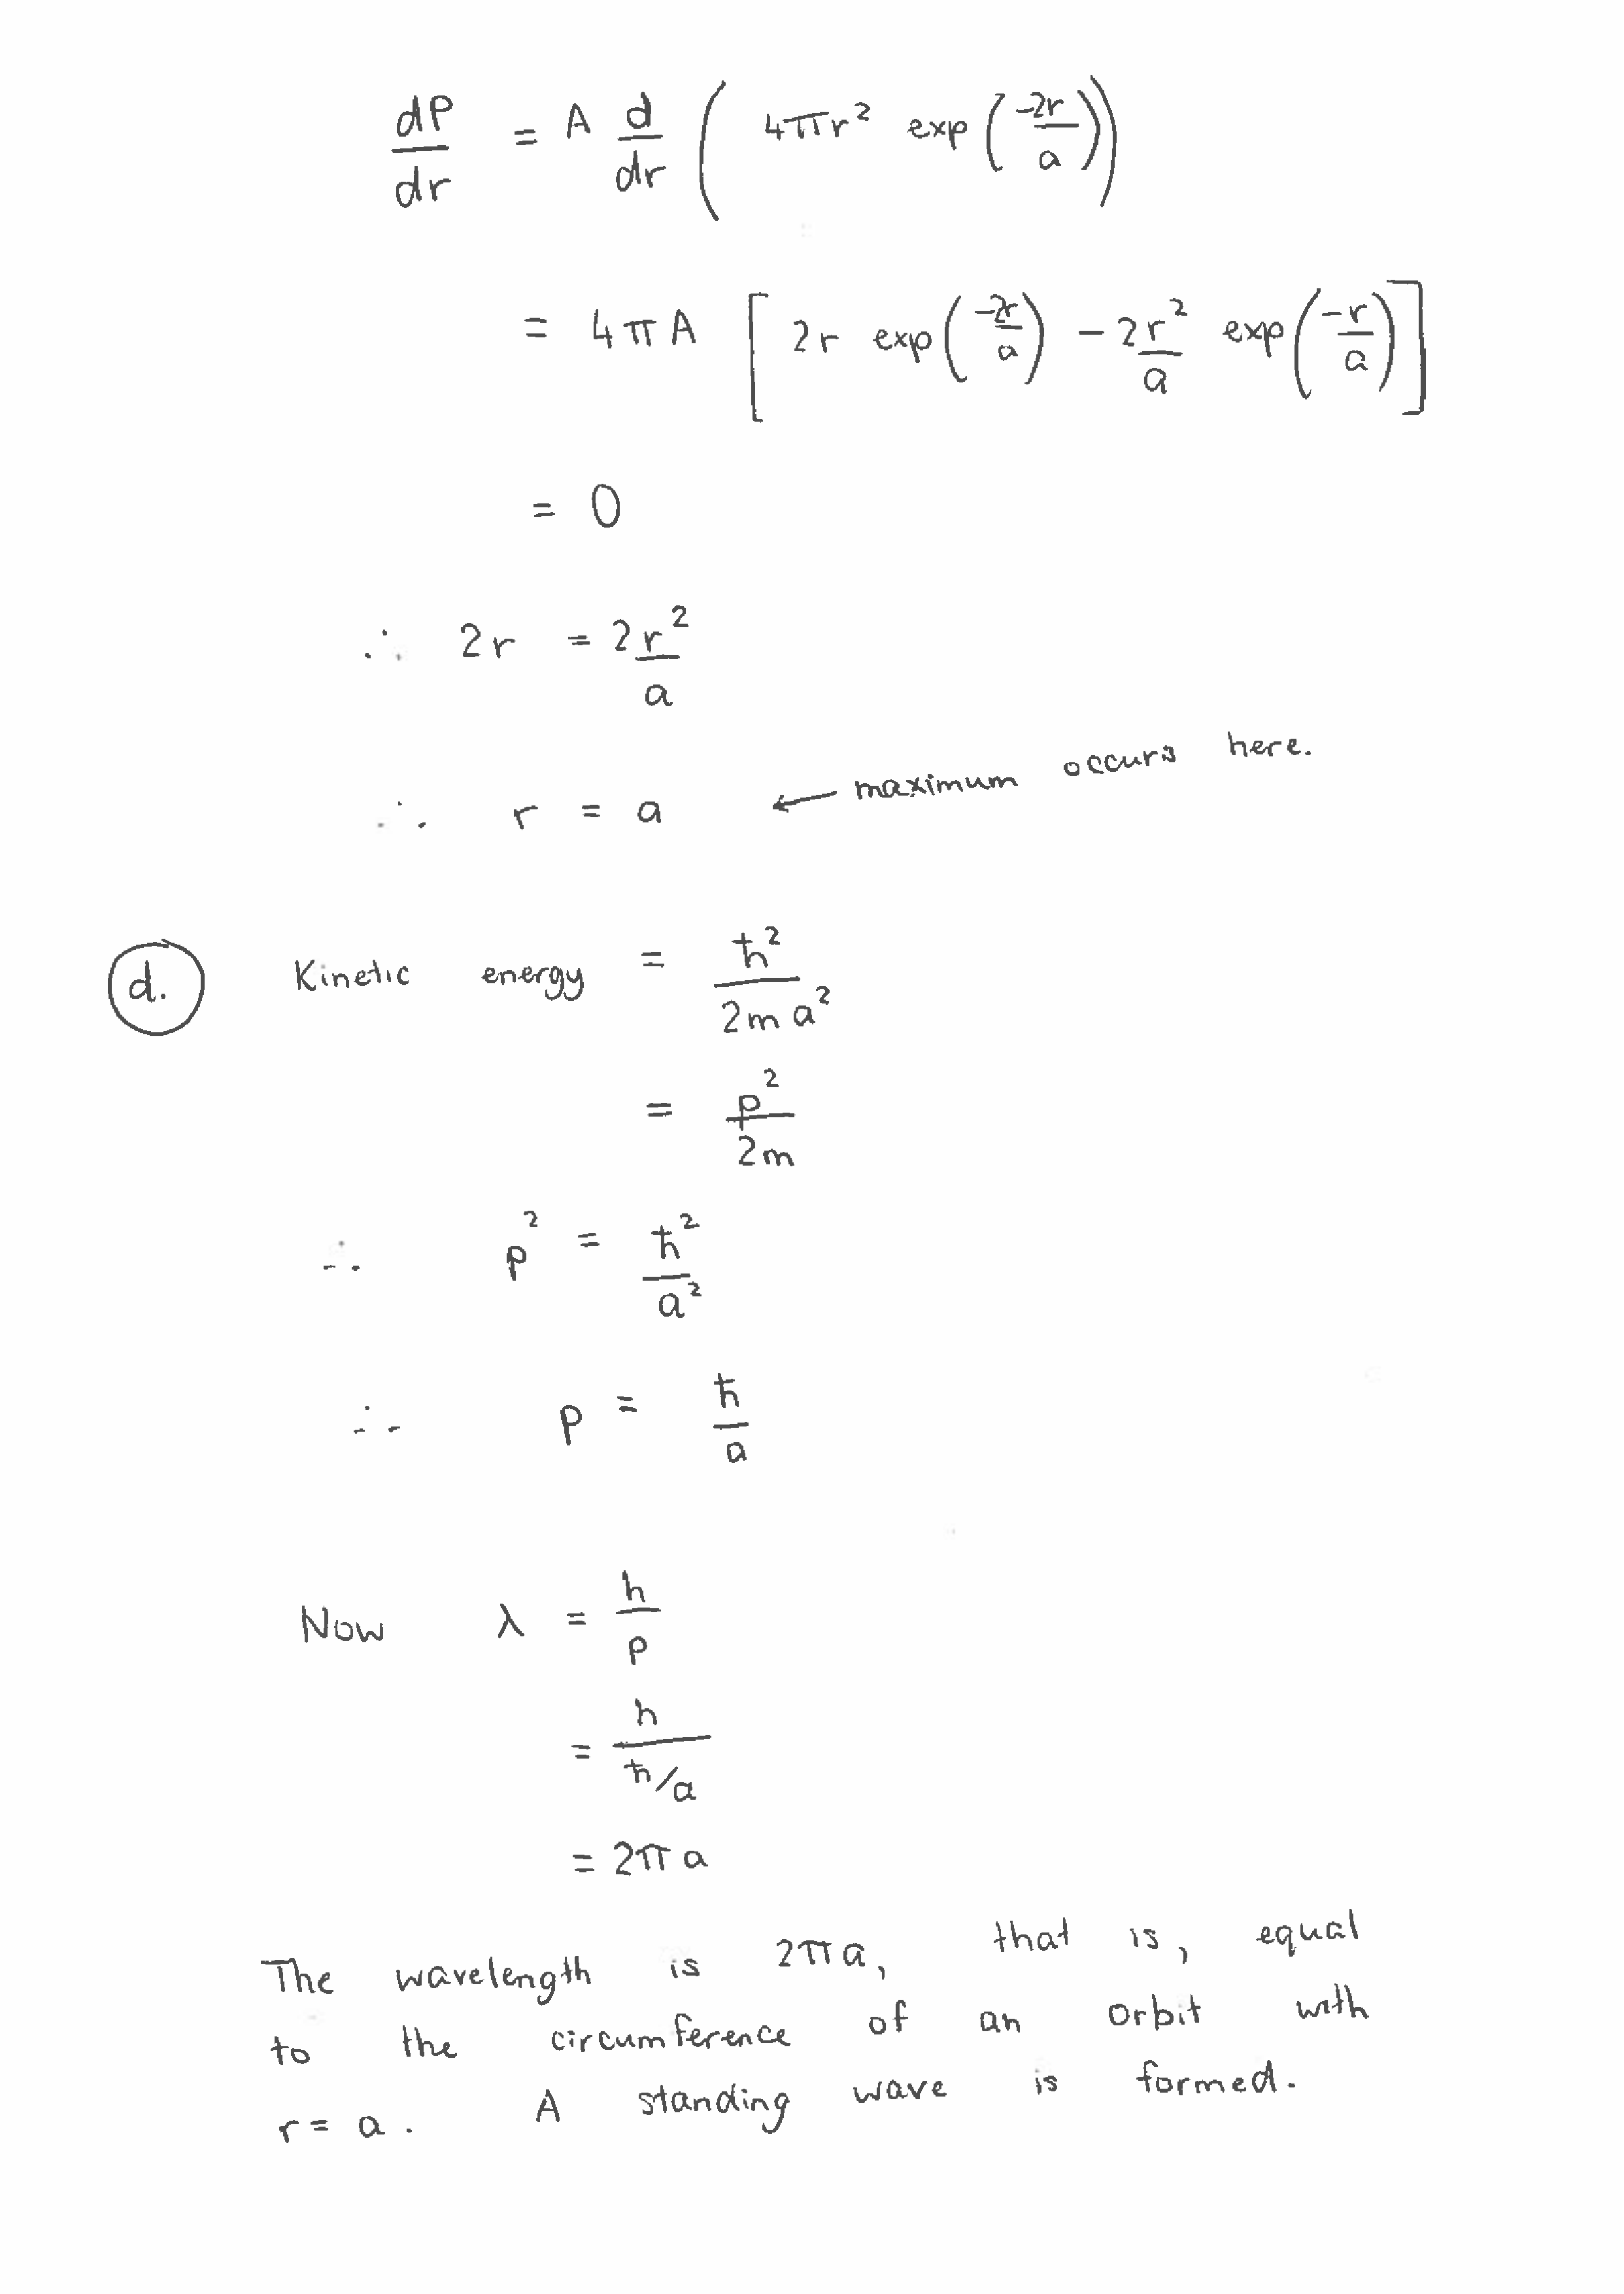 dP/dr = A d/dr ( 4πr² exp(-2r/a) )
= 4πA [ 2r exp(-2r/a) - 2r²/a exp(-r/a) ]
= 0
∴ 2r = 2r²/a
∴ r = a ← maximum occurs here.
d. Kinetic energy = ħ²/2ma²
= p²/2m
∴ p² = ħ²/a²
∴ p = ħ/a
Now λ = h/p
= h/ħ/a
= 2πa
The wavelength is 2πa, that is, equal
to the circumference of an orbit with
r = a. A standing wave is formed.